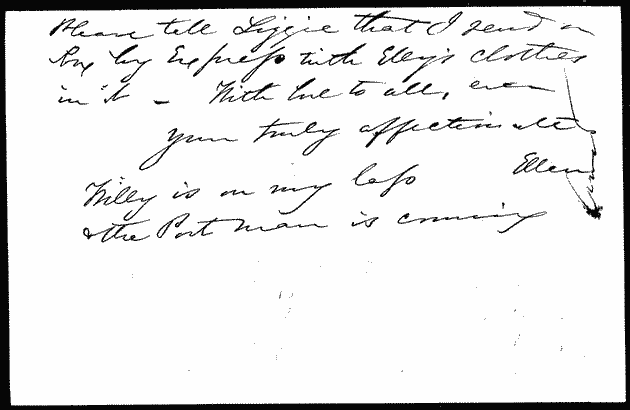 Please tell Lizzie that I send a
box by Express with Elly's clothes
in it - With love to all, ever
your truly affectionate
Ellen
Willy is on my lap
& the Post man is coming